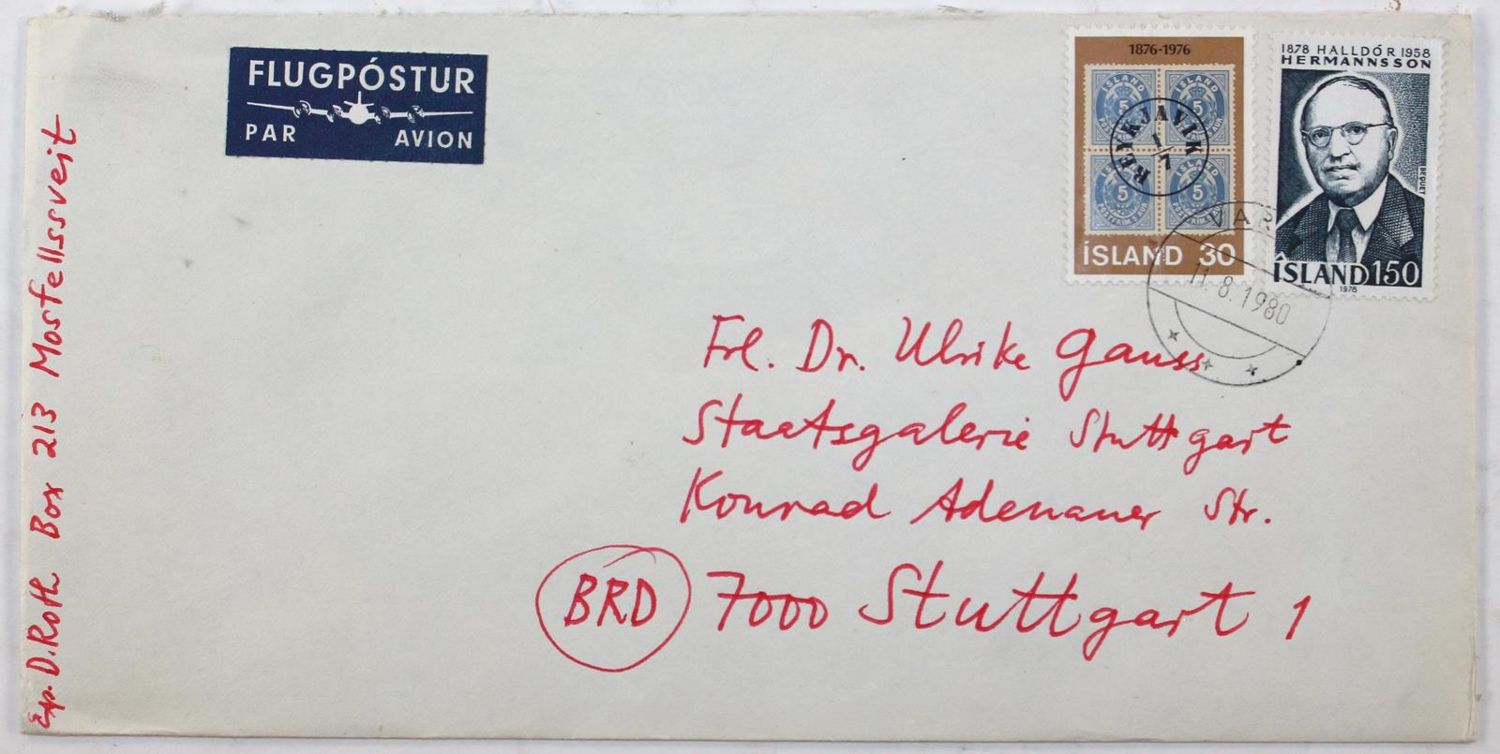 FLUGPÓSTUR
PAR AVION
1876-1976
ÍSLAND ÍSLAND
5 5
REYKJAVÍK
1/7
5 5
ÍSLAND 30
1878 HALLDÓR 1958
HERMANNSSON
BEQUET
ÍSLAND 150
1978
11.8.1980
Exp. D. Roth Box 213 Mosfellssveit
Frl. Dr. Ulrike Gauss
Staatsgalerie Stuttgart
Konrad Adenauer Str.
BRD 7000 Stuttgart 1